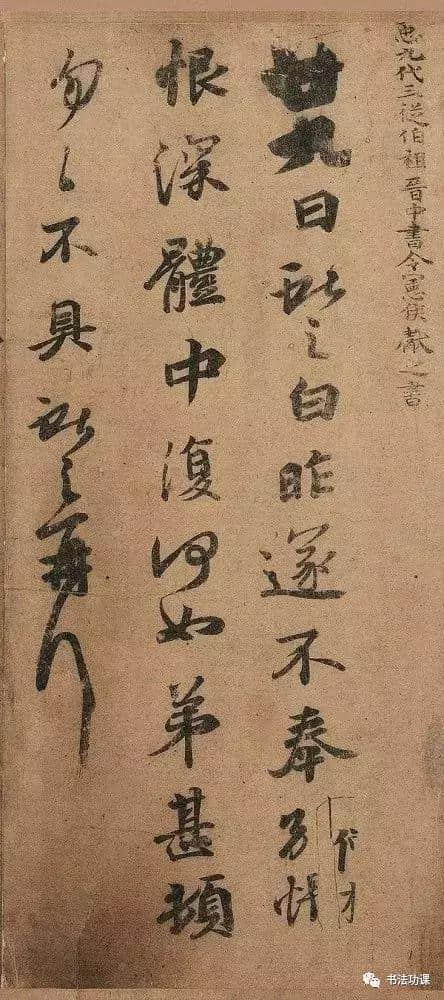 臣九代三從伯祖晉中書令憲侯獻之書
廿九日獻之白昨遂不奉別悵
恨深體中復何如弟甚頓
勿勿不具獻之再拜
书法功课